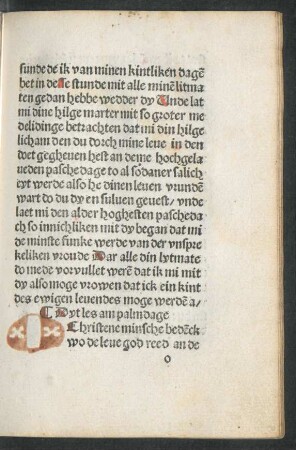 sunde de ik van minen kintliken dagē
bet in desse stunde mit alle minē litma
ten gedan hebbe wedder dy Unde lat
mi dine hilge marter mit so groter me
delidinge betrachten dat mi din hilge
licham den du dorch mine leue in den
doet gegheuen hest an deme hochgela
ueden pasche dage to al sodaner salich
eyt werde also he dinen leuen vrunden
wart do du dy en sulven geuest/vnde
laet mi den alder hoghesten pascheda
ch so innichliken mit dy began dat mi
de minste funke werde van der vnspre
keliken vroude Dar alle din lytmate
do mede vorvullet werē dat ik mi mit
dy also moge vrowen dat ick ein kint
des ewigen leuendes moge werdē a/
Dyt les am palmdage
Christene minsche bedēck
wo de leue god reed an de
o